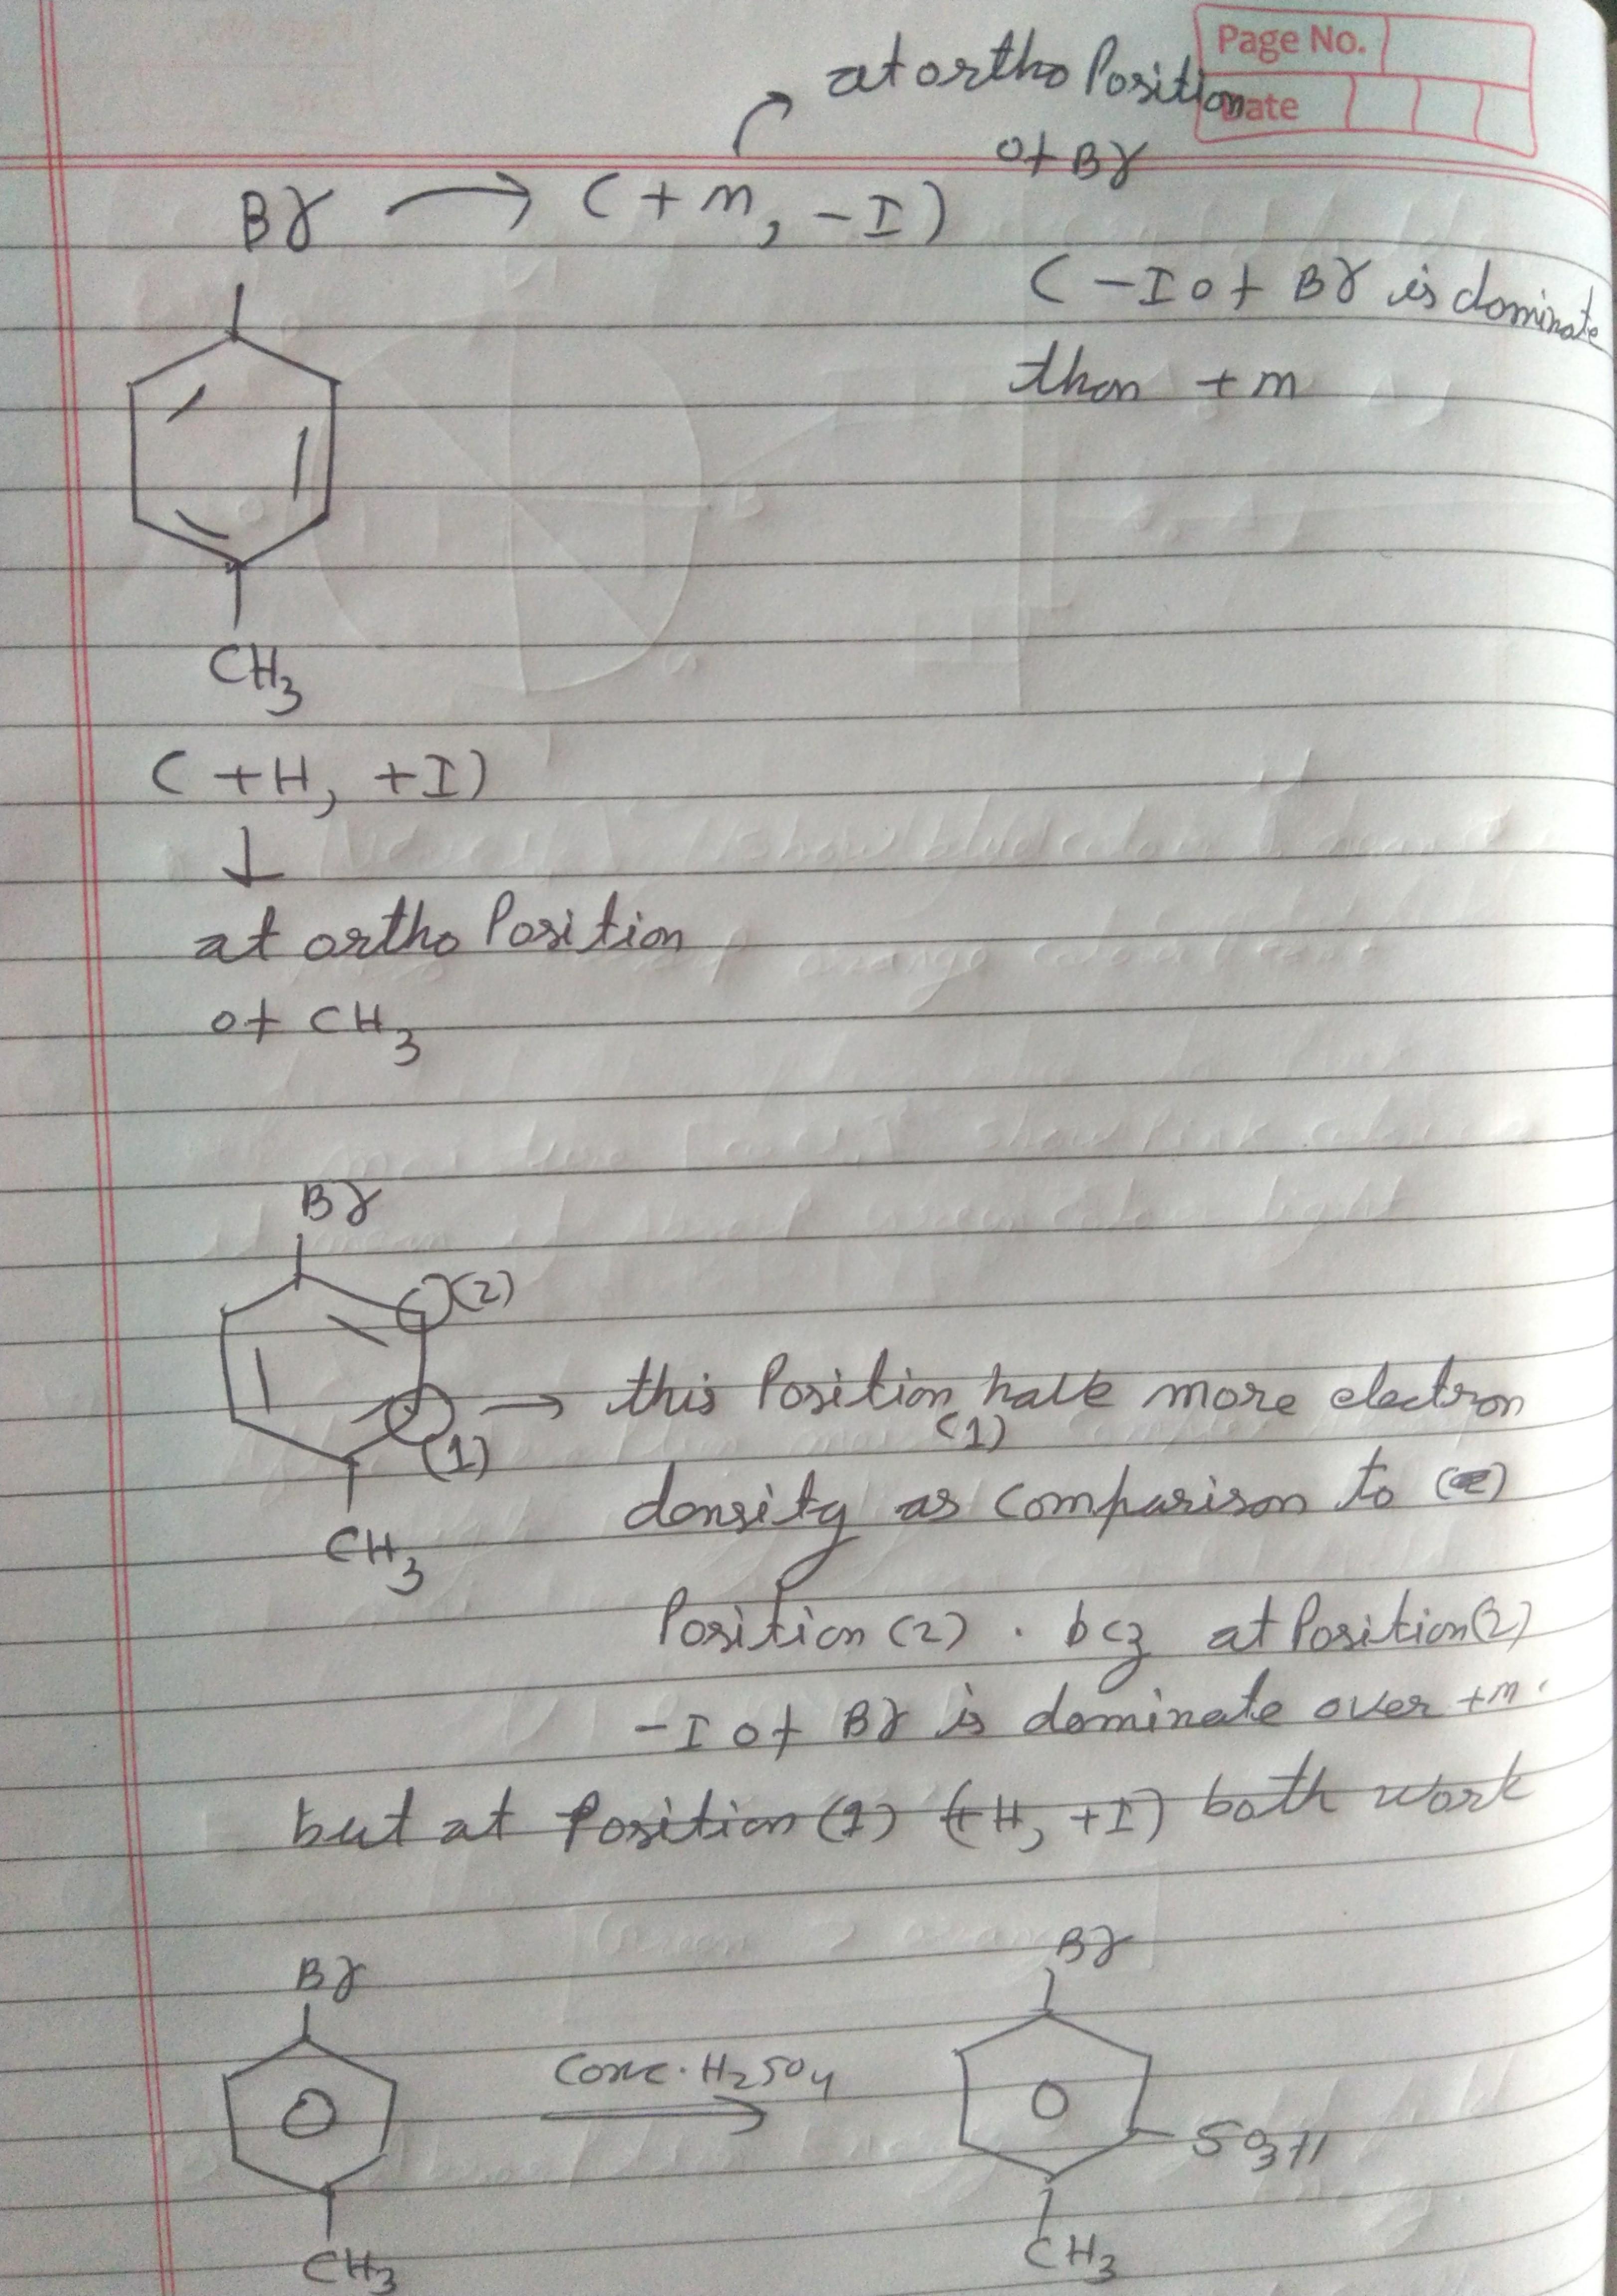 Page No.
Date
at ortho Position
of Br
Br → (+m, -I)
(-I of Br is dominate
than +m
CH3
(+H, +I)
↓
at ortho Position
of CH3
Br
(2)
(1) → this Position (1) have more electron
density as comparison to
CH3
Position (2) . bcz at Position (2)
-I of Br is dominate over +m.
but at Position (1) (+H, +I) both work
Br
Br
Conc. H2SO4
SO3H
CH3
CH3